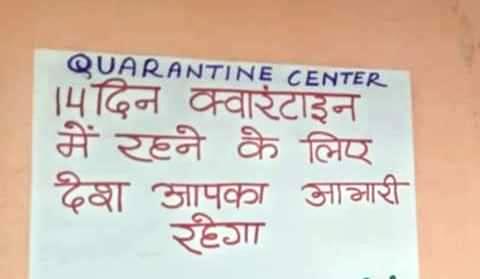 QUARANTINE CENTER
14 दिन क्वारंटाइन
में रहने के लिए
देश आपका आभारी
रहेगा